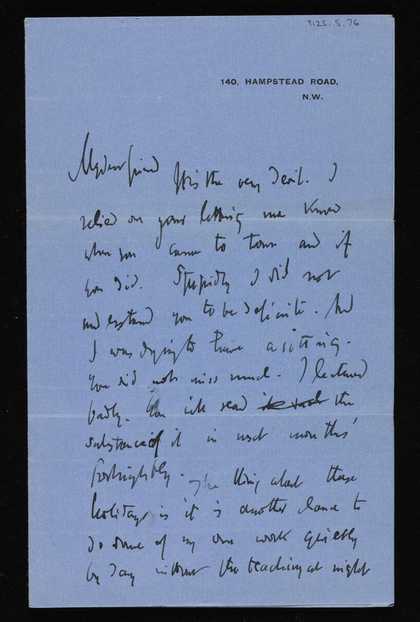 9125.5.76
140, HAMPSTEAD ROAD,
N.W.
My dear friend It is the very Devil. I
relied on your letting me know
when you came to town and if
you did. Stupidly I did not
understand you to be definite. And
I was dying to have a sitting.
You did not miss much. I lectured
badly. You will read the
substance of it in next months'
Fortnightly. The thing about these
holidays is it is another chance to
do some of my own work quietly
by day without the teaching at night